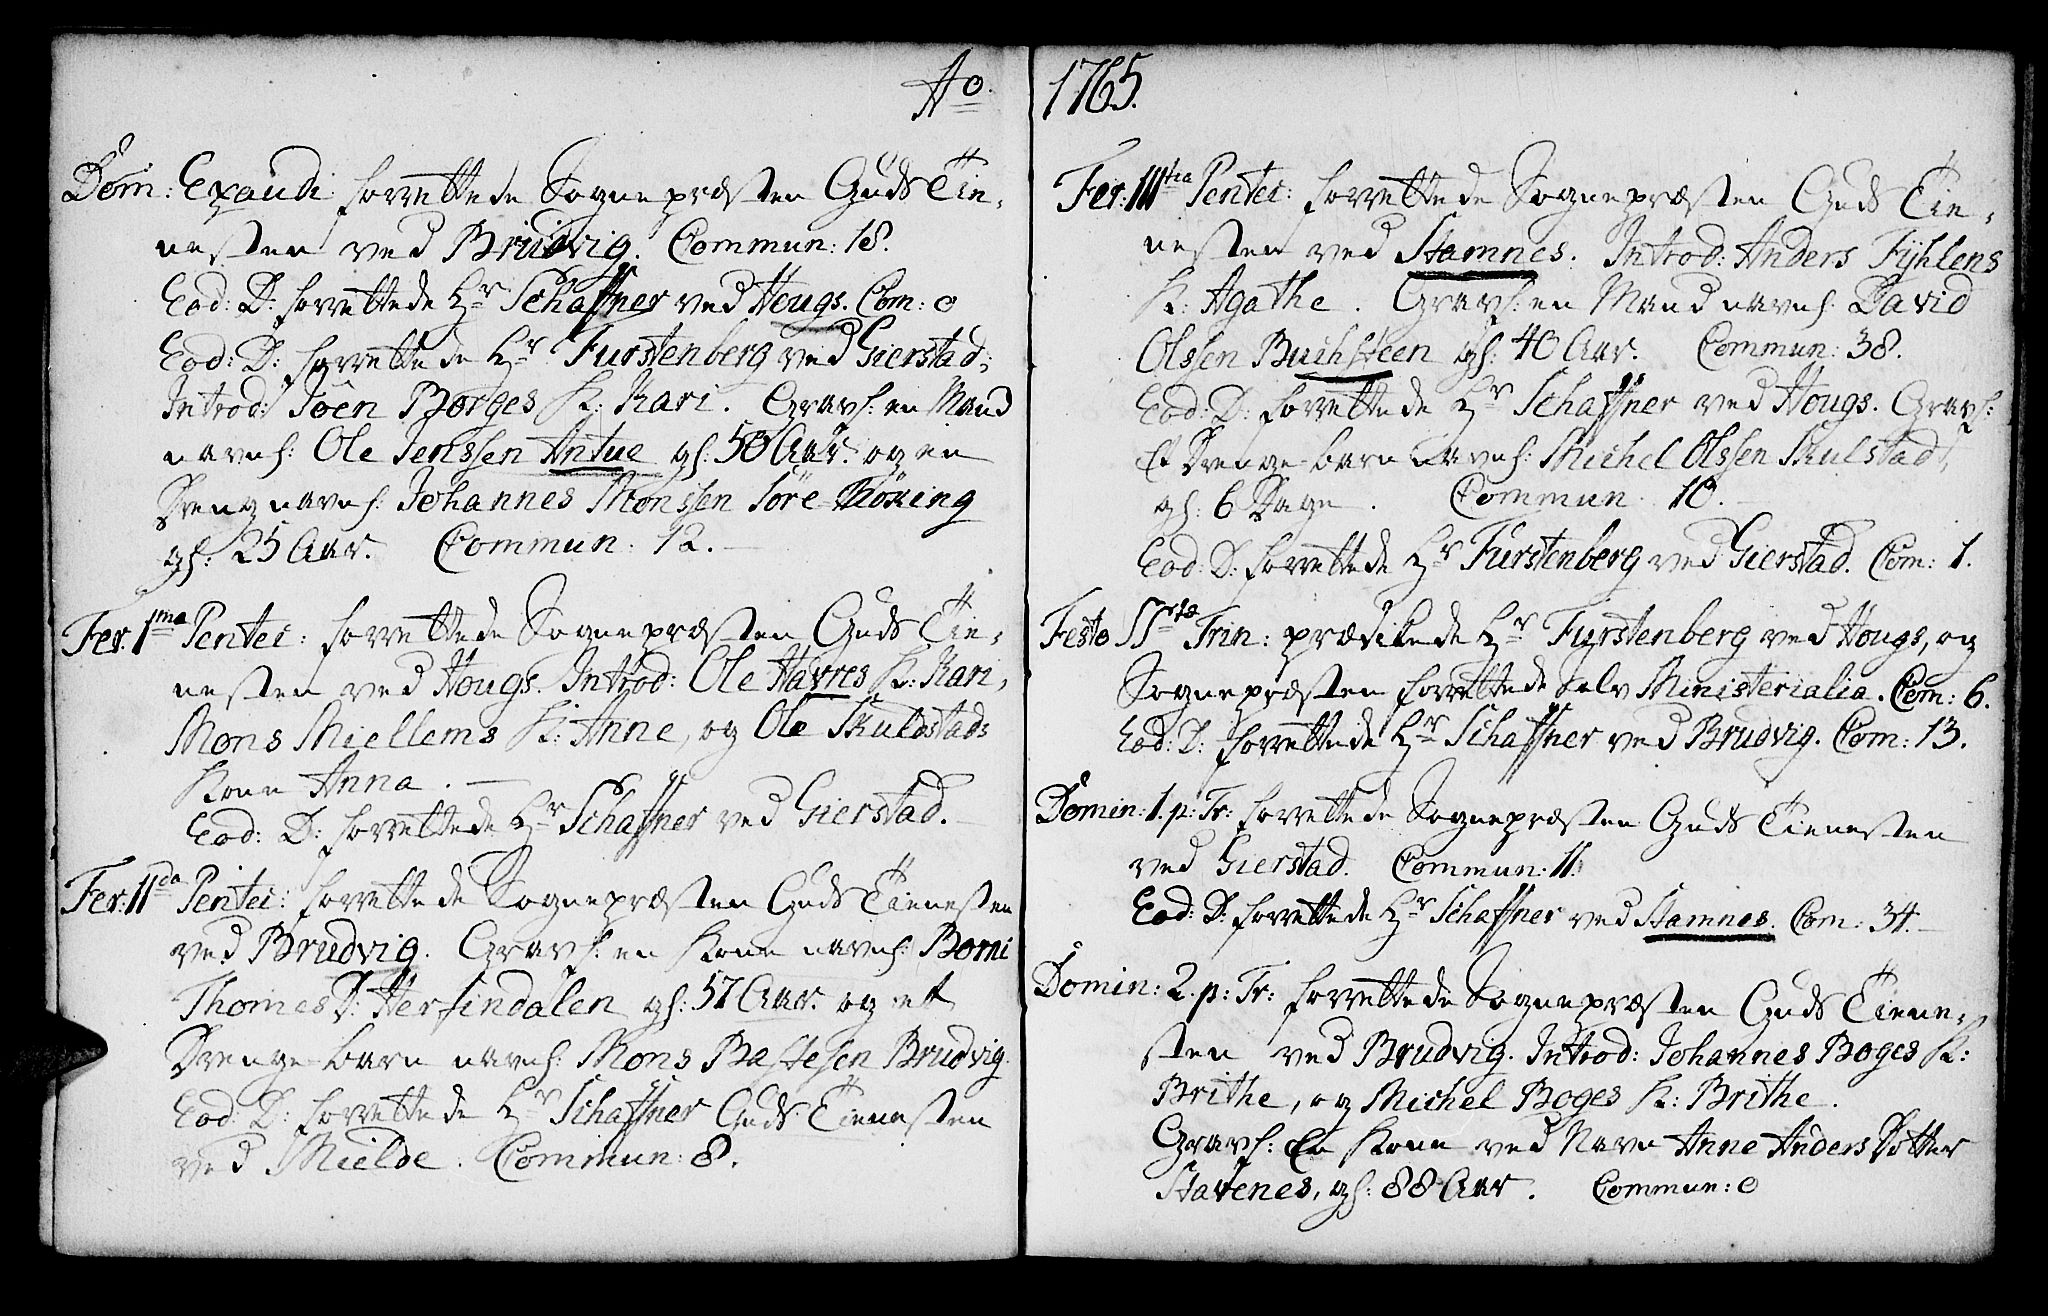 Ao. 1765.
Dom: Exaudi forrettede Sognepræsten Guds Tie-
nesten ved Brudvig. Commun: 18.
Eod: D: forrettede Hr Schaffner ved Hougs. Com: 0
Eod: D: forrettede Hr Furstenberg ved Gierstad:
Introd: Joen Borges K: Kari. Gravf: en Mand
navnl: Ole Jenssen Antue gl: 50 Aar. og en
Dreng navnl: Johannes Monssen Søre-
gl: 25 Aar. Commun: 12.
Fer. 1ma Pentec: forrettede Sognepræsten Guds Tie-
nesten ved Hougs. Introd: Ole Havres K: Kari,
Mons Miellems K: Anne, og Ole Skulstads
Kone Anna.
Eod: D: forrettede Hr Schaffner ved Gierstad.
Fer: 11da Pentec: forrettede Sognepræsten Guds Tienesten
ved Brudvig. Gravf: en Kone navnl: Borni
Thomes D: Herfindalen gl: 57 Aar. og et
Drenge-barn navnl: Mons Bastesen Brudvig.
Eod: D: forrettede Hr Schaffner Guds Tienesten
ved Mielde. Commun: 8.
Fer: 111tia Pentec: forrettede Sognepræsten Guds Tie-
nesten ved Stamnes. Introd: Anders Fyhlens
K: Agathe. Gravf: en Mand navnl: David
Olssen Buchsteen gl: 40 Aar. Commun: 38.
Eod: D: forrettede Hr Schaffner ved Hougs. Gravf:
Et Drenge-barn navnl: Michel Olssen Skulstad,
gl: 6 Dage. Commun. 10.
Eod: D: forrettede Hr Furstenberg ved Gierstad. Com: 1.
Festo Trin: prædikede Hr Furstenberg ved Hougs, og
Sognepræsten forrettede selv Ministerialia. Com: 6.
Eod: D: forrettede Hr Schaffner ved Brudvig. Com: 13.
Domin: 1. p: Tr: forrettede Sognepræsten Guds Tienesten
ved Gierstad. Commun: 11.
Eod: D: forrettede Hr Schaffner ved Stamnes. Com: 34.
Domin: 2. p: Tr: forrettede Sognepræsten Guds Tiene-
sten ved Brudvig. Introd: Johannes Boges K:
Brithe, og Michel Boges K: Brithe.
Gravf: En Kone ved Navn Anne Anders Dotter
Stavenes, gl: 88 Aar. Commun: 0